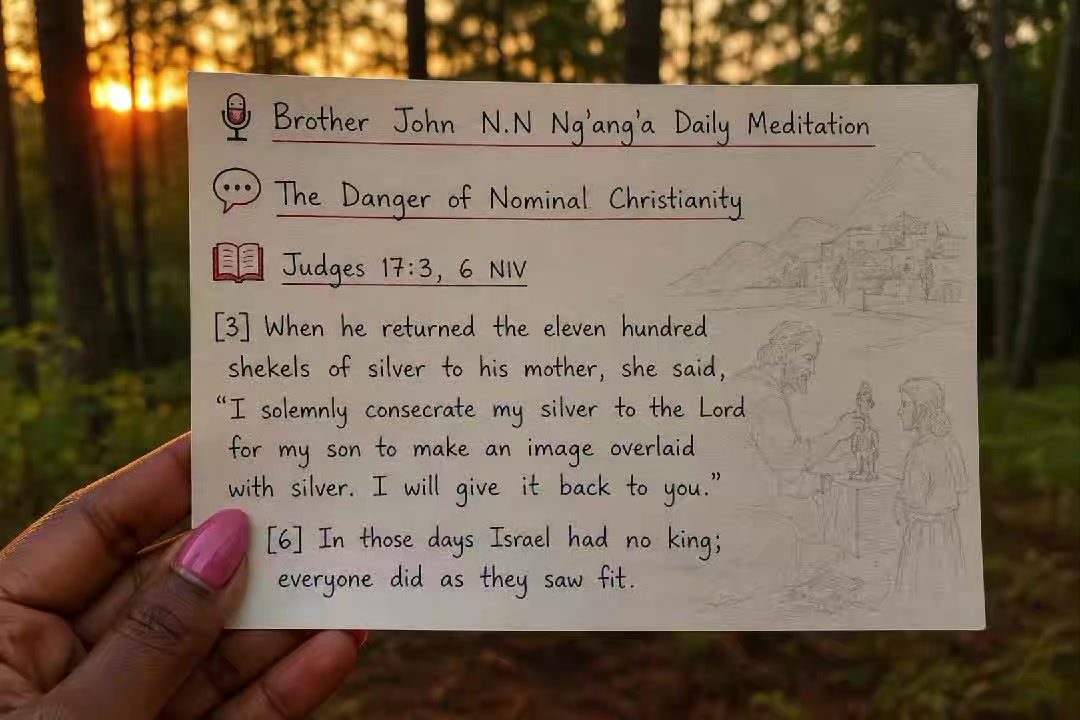 Brother John N.N Ng'ang'a Daily Meditation
The Danger of Nominal Christianity
Judges 17:3, 6 NIV
[3] When he returned the eleven hundred
shekels of silver to his mother, she said,
“I solemnly consecrate my silver to the Lord
for my son to make an image overlaid
with silver. I will give it back to you.”
[6] In those days Israel had no king;
everyone did as they saw fit.